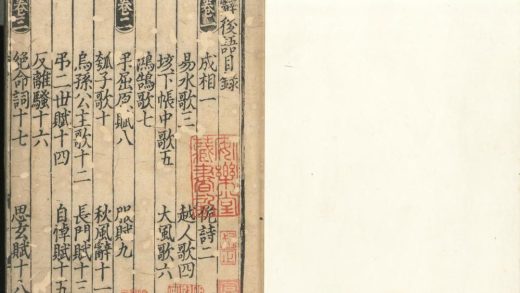 辭後語目錄
卷一 成相一 佹詩二
易水歌三 越人歌四
垓下帳中歌五 大風歌六
鴻鵠歌七
卷二 弔屈原賦八 賦九
瓠子歌十 秋風辭十一
烏孫公主歌十二 長門賦十三
弔二世賦十四 自悼賦十五
反離騷十六
卷三 絕命詞十七 思玄賦十八